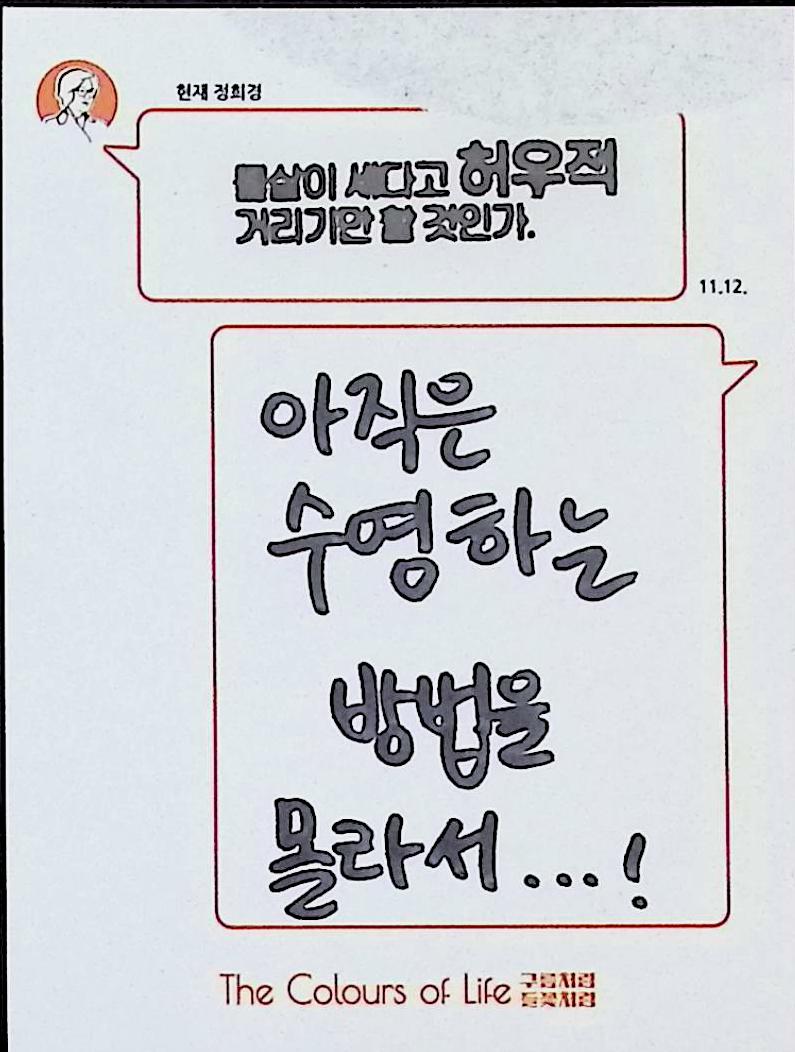 헌재 정희경
물살이 세다고 허우적
거리기만 할 것인가.
11.12.
아직은
수영하는
방법을
몰라서...!
The Colours of Life 구름처럼
들꽃처럼